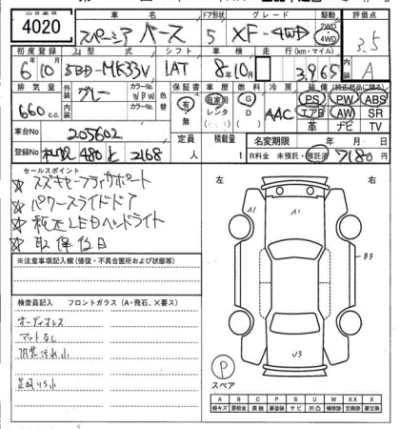 4020
車名
スペーシア ベース
ドア形状
5
グレード
XF-4WD
駆動
2WD
4WD
評価点
3.5
初度登録
6年10月
型式
5BD-MK33V
シフト
IAT
車検
8年10月
走行(km・マイル)
3,965
内装
A
排気量
660 c.c.
外装
グレー
内装
カラーNo.
カラーNo.
色替
保証書
有・無
車歴
自家用
レンタ
燃料
G
D
冷房
AAC
装備
PS PW ABS
エアB AW SR
革 ナビ TV
車台No
205602
定員
人
積載量
1
名変期限
年 月 日
登録No
札幌 480 と 2168
R料金 未預託・預託済 7180円
セールスポイント
☆ スズキセーフティサポート
☆ パワースライドドア
☆ 純正LEDヘッドライト
☆ 取保後日
※注意事項記入欄(修復・不具合箇所および状態等)
検査員記入 フロントガラス(A・飛石、X要ス)
オーディオレス
マットなし
内装汚れ小
左
右
A1
A1
B3
U3
P
スペア
A B C P S U W X XX